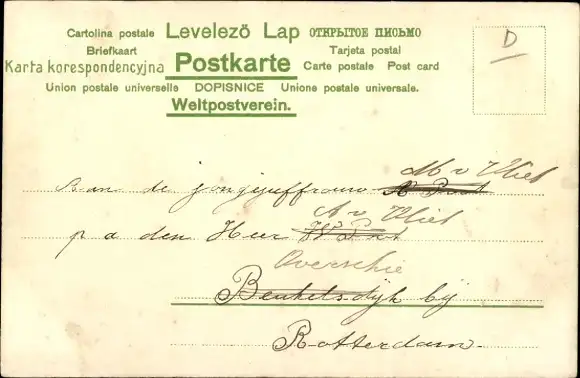 Cartolina postale Levelező Lap ОТКРЫТОЕ ПИСЬМО
Briefkaart Tarjeta postal
Karta korespondencyjna Postkarte Carte postale Post card
Union postale universelle DOPISNICE Unione postale universale.
Weltpostverein.
D
M v Vliet
Aan de jongejuffrouw
A v Vliet
p a den Heer W
Overschie
Beukelsdyk bij
Rotterdam.